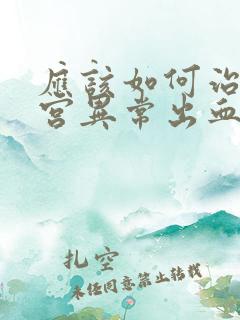 应该如何治
宫异常出血
扎空
未经同意禁止转载